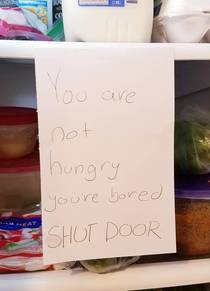 You are
not
hungry
you're bored
SHUT DOOR
EAT